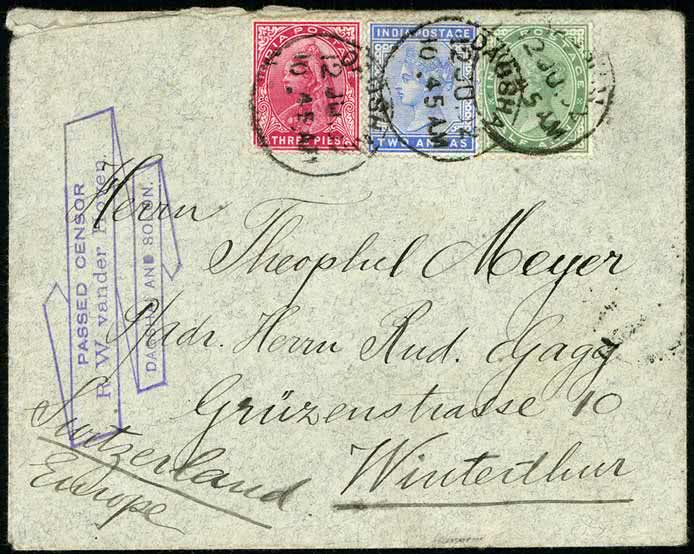 INDIA POSTAGE
THREE PIES
INDIA POSTAGE
TWO ANNAS
12 JU
10.45 AM
12 JU
10.45 AM
PASSED CENSOR
R. W. vander Hoven
DAGSHAI AND SOLON.
Herrn
Theophil Meyer
p/adr. Herrn Rud. Gagg
Grüzenstrasse 10
Winterthur
Switzerland
Europe